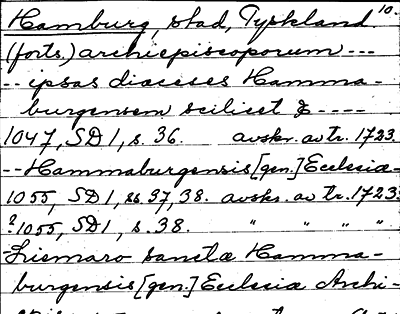 Hamburg, stad, Tyskland 10.
(forts.) archiepiscoporum ---
-- ipsas dioceses Hamma-
burgensem scilicet & ----
1047, SD 1, s. 36. avskr. av tr. 1723.
-- Hammaburgensis [gen.] Ecclesia -
1055, SD 1, ss. 37, 38. avskr. av tr. 1723.
? 1055, SD 1, s. 38. " " " "
Liemaro sanctæ Hamma-
burgensis [gen.] Ecclesiæ Archi-